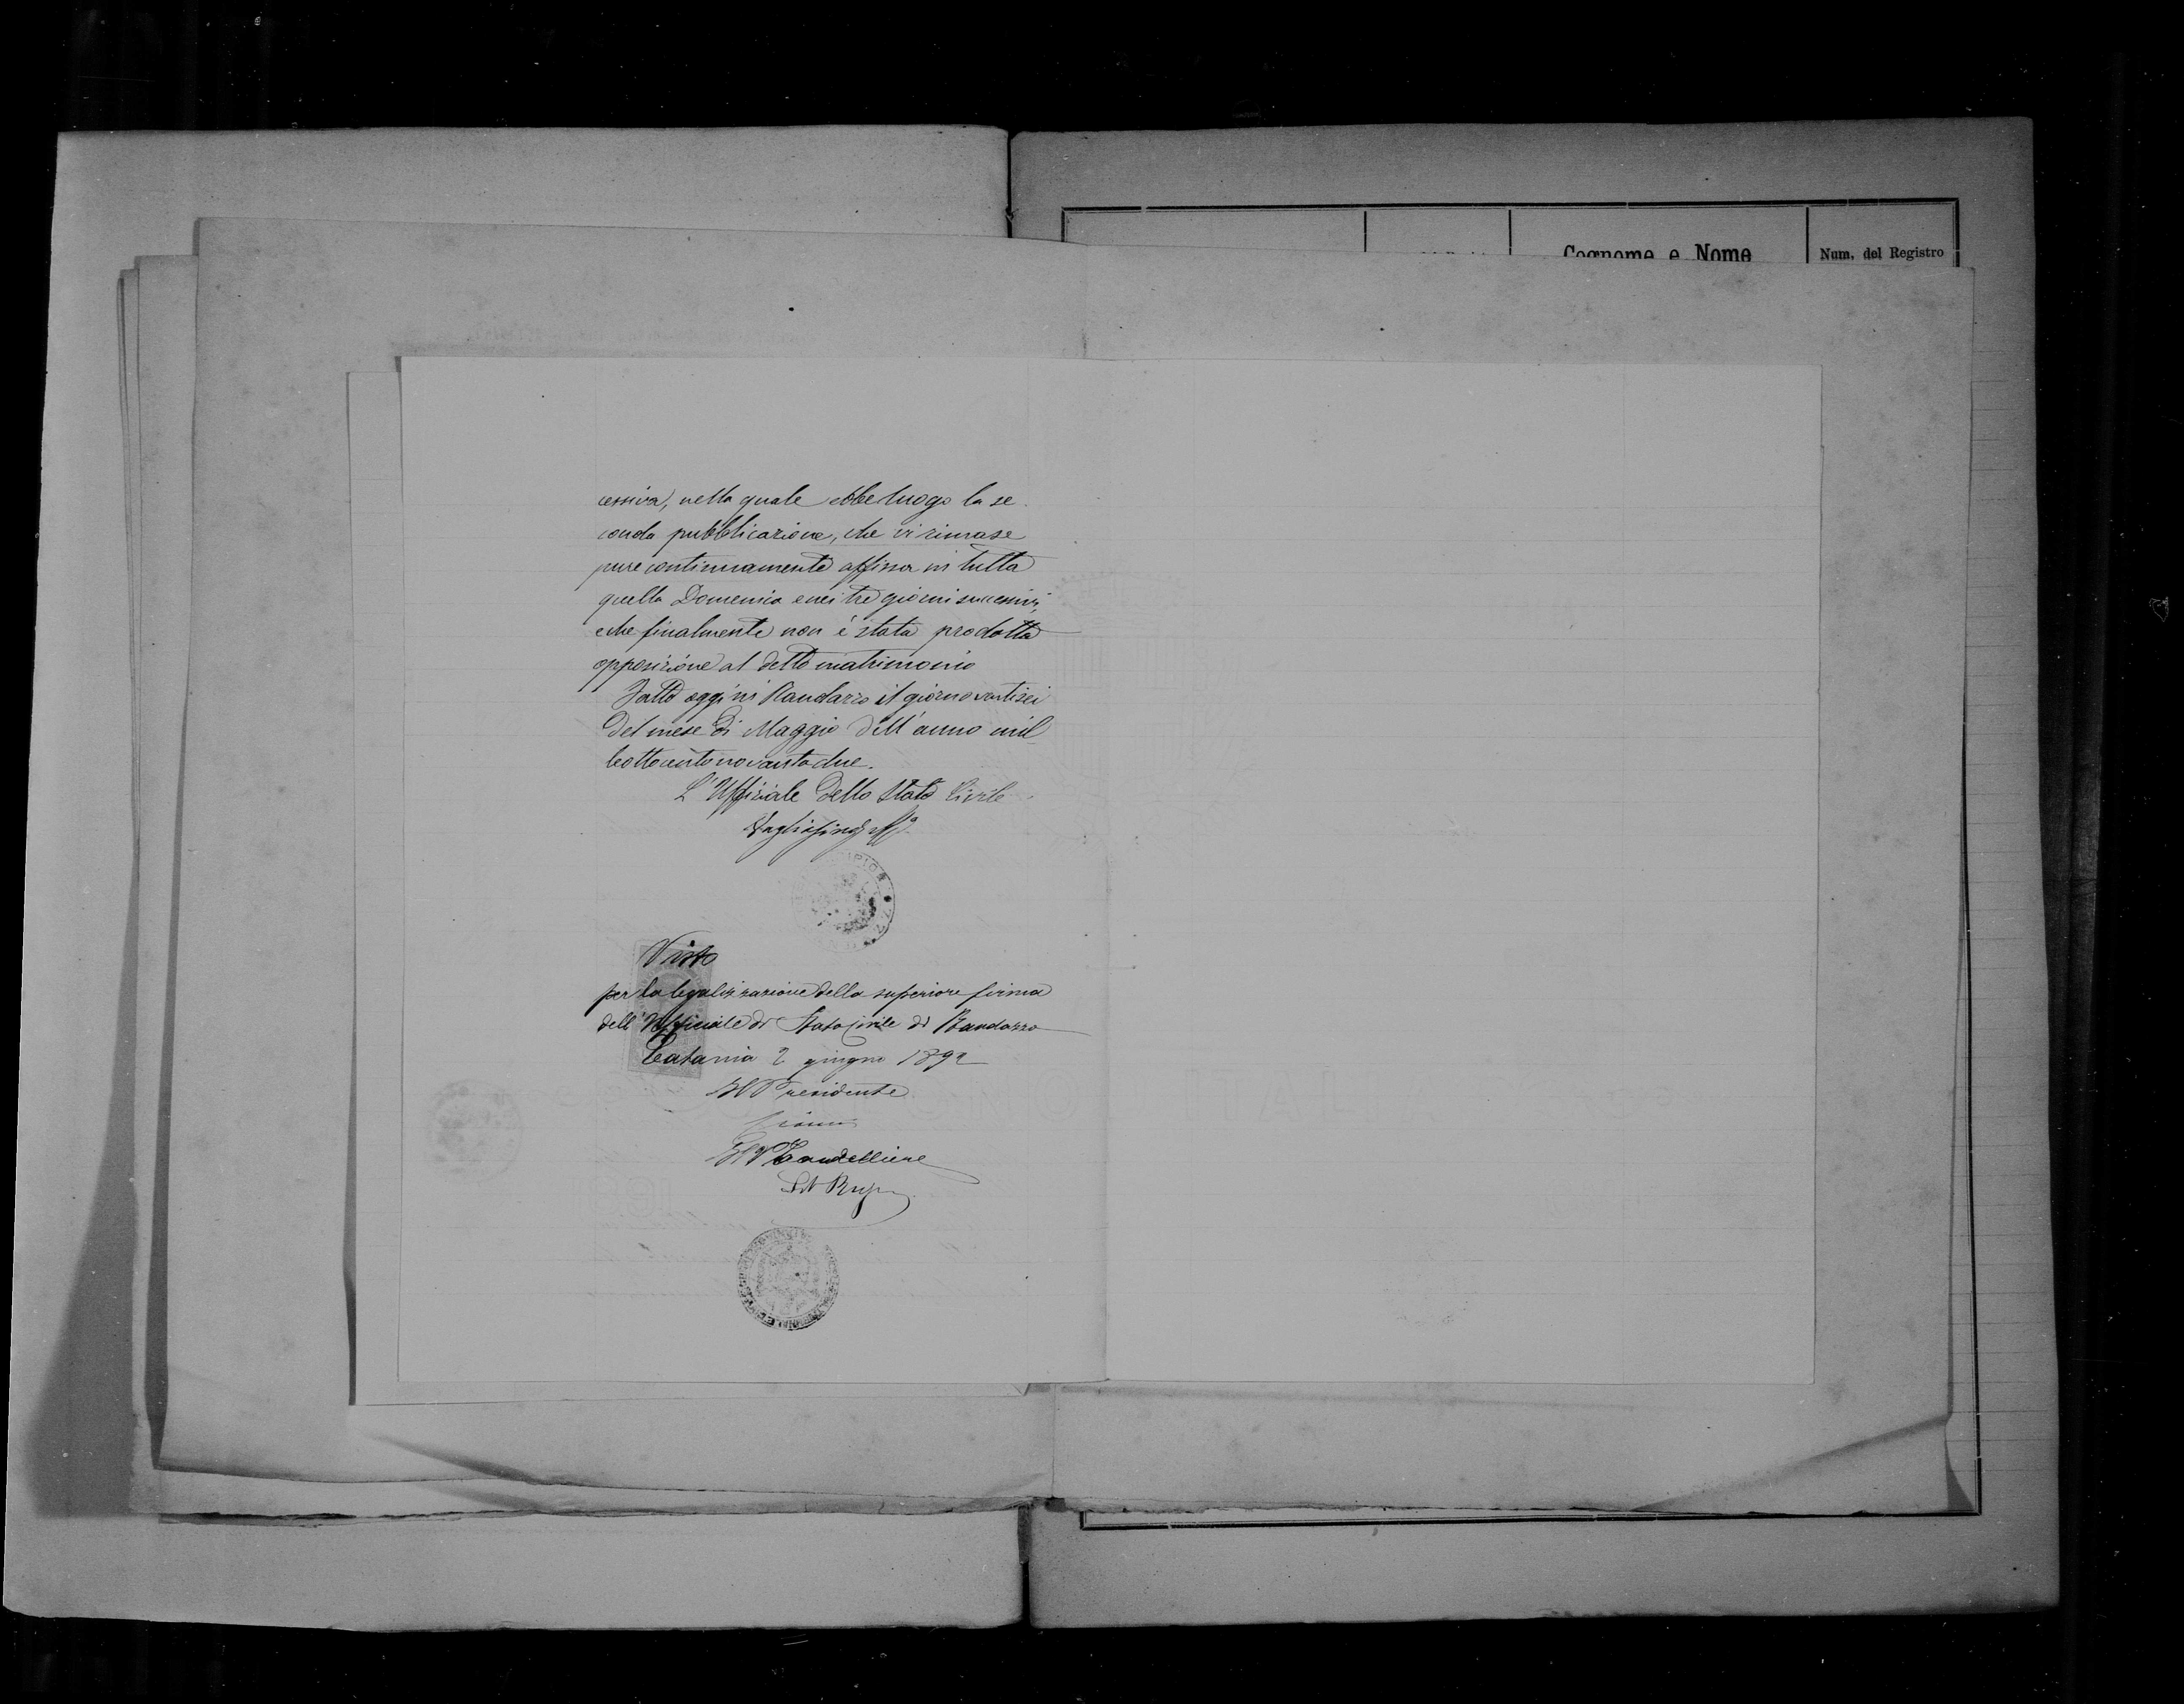 Cognome e Nome
Num. del Registro
cessiva, nella quale ebbe luogo la se
conda pubblicazione, che vi rimase
pure continuamente affissa in tutta
quella Domenica e nei tre giorni successivi,
e che finalmente non è stata prodotta
opposizione al detto matrimonio
Fatto oggi in Randazzo il giorno ventisei
del mese di Maggio dell'anno mil
leottocentonovantadue.
L'Uffiziale dello Stato Civile
Visto
per la legalizzazione della superiore firma
dell'Uffiziale di Stato Civile di Randazzo
Catania 2 giugno 1892
Il Presidente
Il V Cancelliere